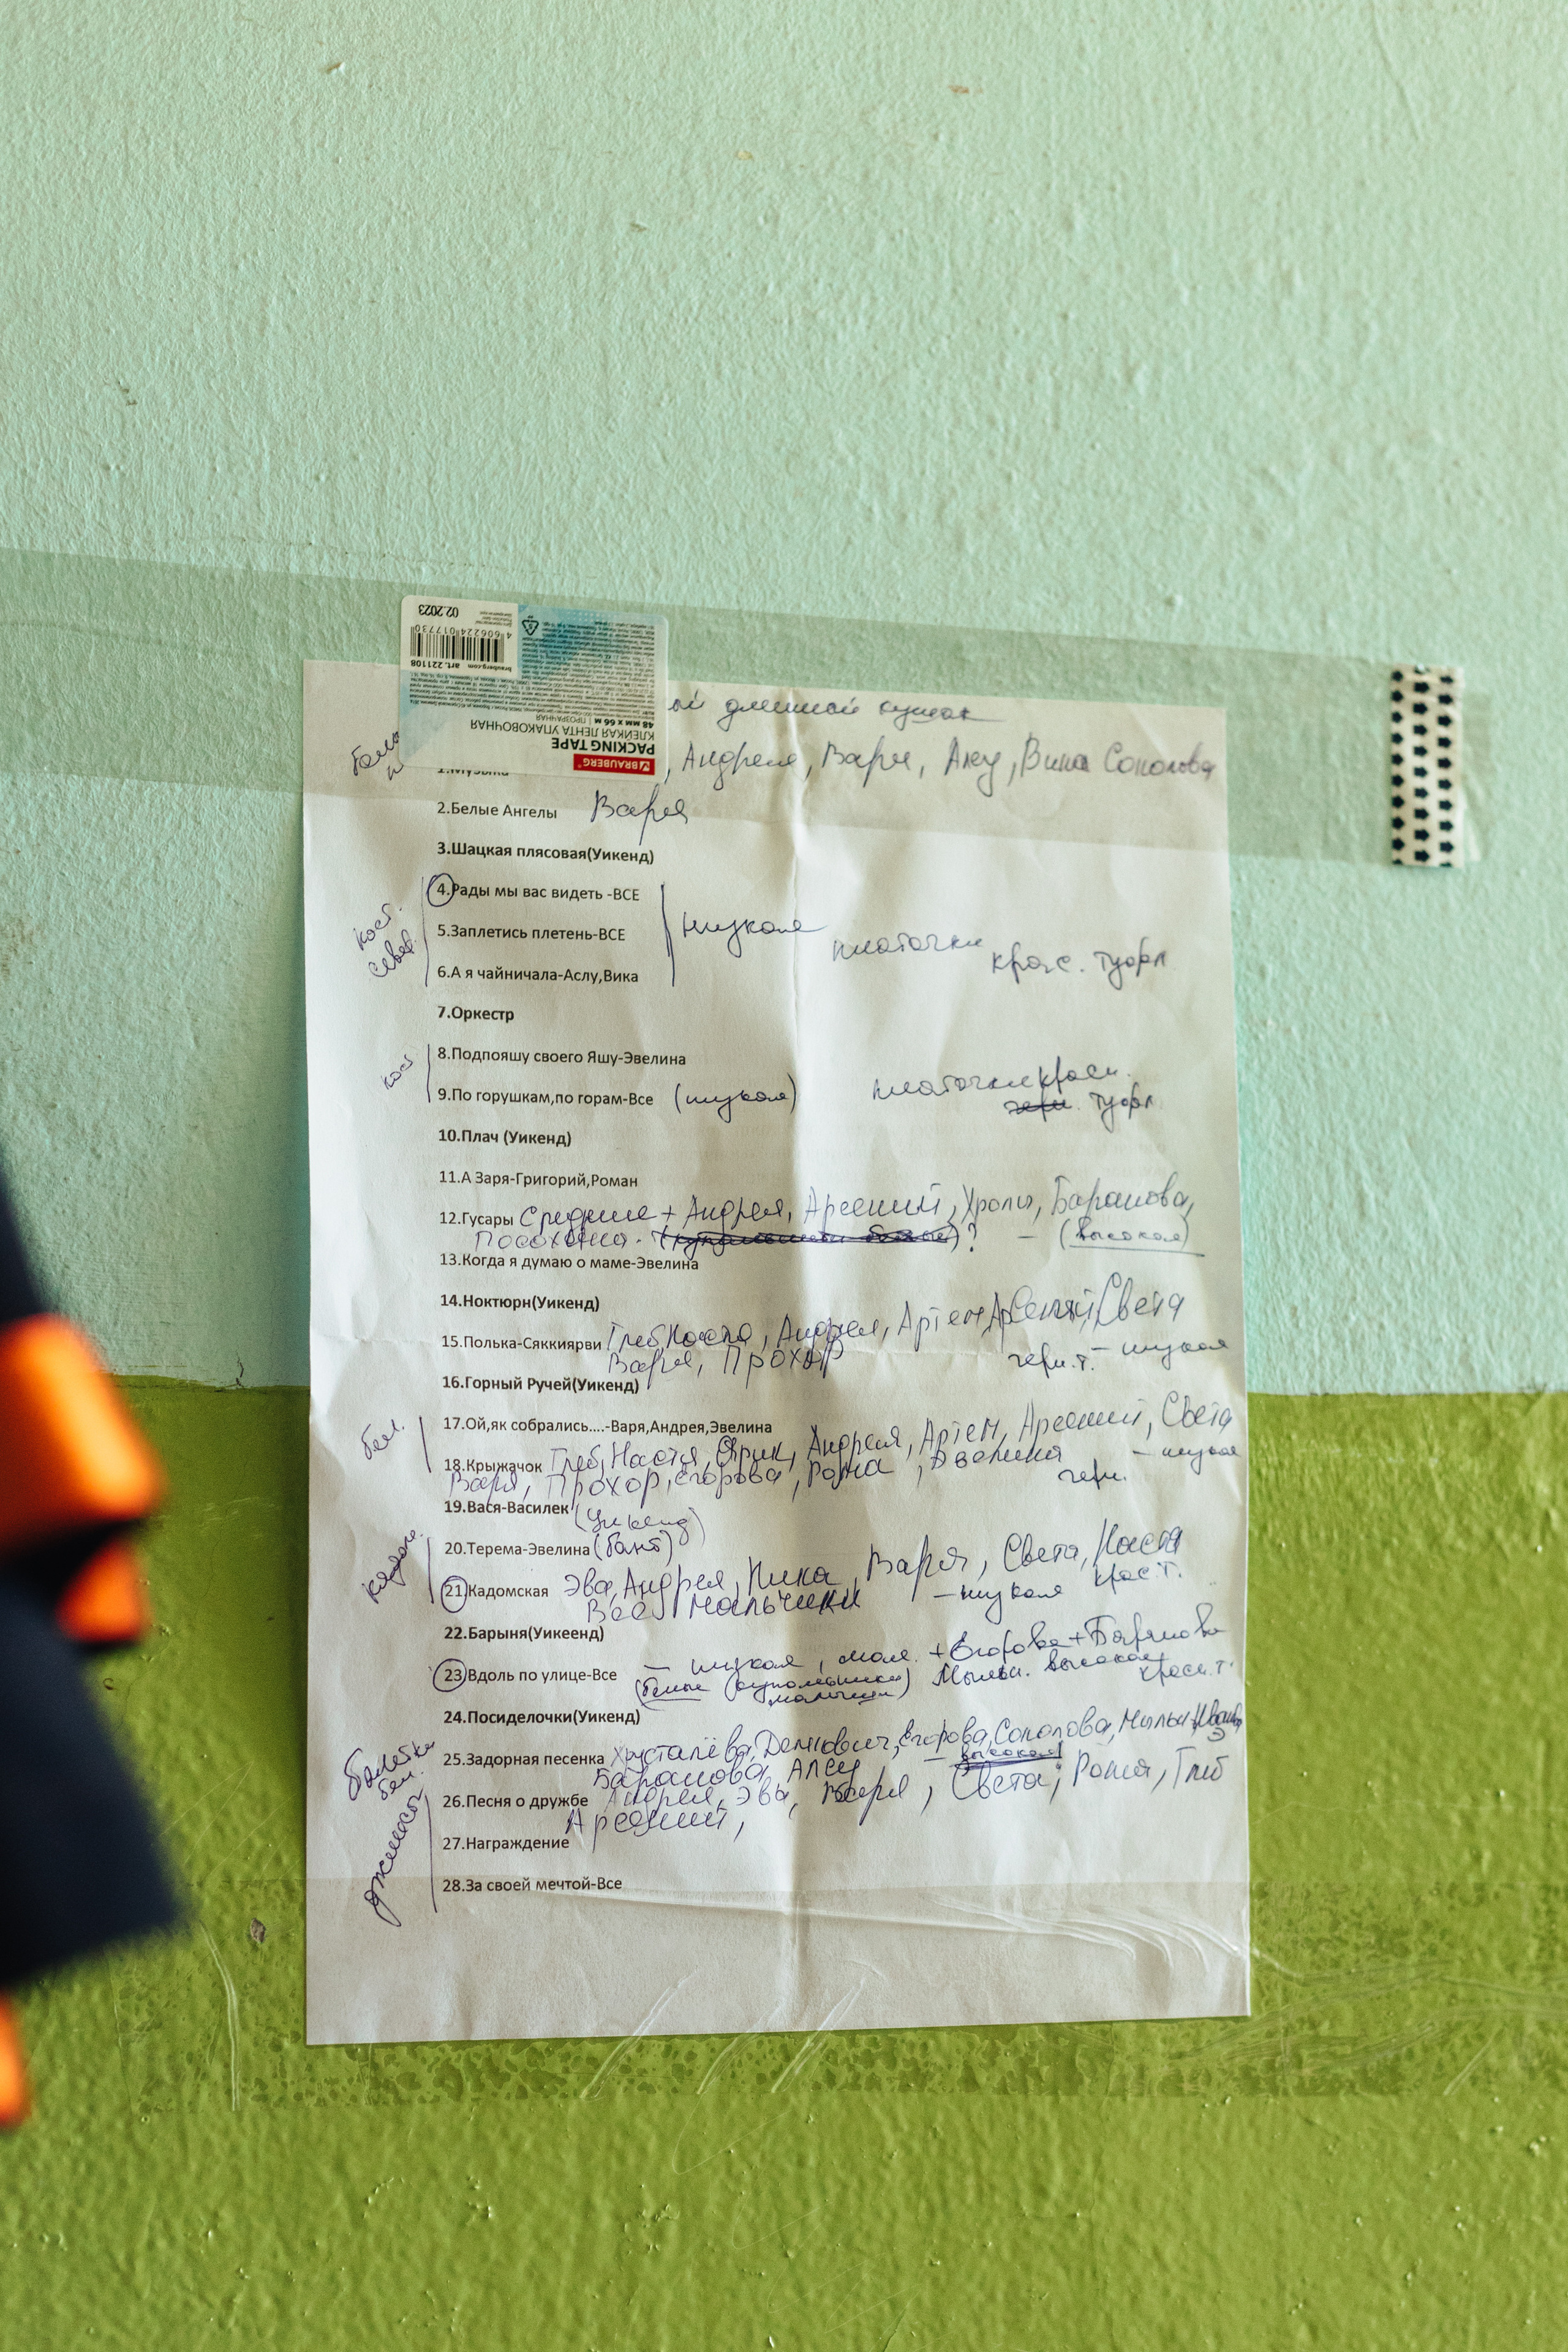 02.2023
4 606224 017730
brauberg.com art. 221108
BRAUBERG
PACKING TAPE
КЛЕЙКАЯ ЛЕНТА УПАКОВОЧНАЯ
48 мм x 66 м | ПРОЗРАЧНАЯ
ый длинной кушак
, Андрея, Варя, Аслу, Вика Соколова
2.Белые Ангелы Варя
3.Шацкая плясовая(Уикенд)
4.Рады мы вас видеть -ВСЕ
кост. север.
5.Заплетись плетень-ВСЕ низкая платочки красн. туфл
6.А я чайничала-Аслу,Вика
7.Оркестр
8.Подпояшу своего Яшу-Эвелина
кост
9.По горушкам,по горам-Все (низкая) платочки красн. туфл
10.Плач (Уикенд)
11.А Заря-Григорий,Роман
12.Гусары Средние + Андрея, Арсений, Баранова,
? - (высокая)
13.Когда я думаю о маме-Эвелина
14.Ноктюрн(Уикенд)
15.Полька-Сяккиярви Глеб, Настя, Андрея, Артем, Арсений, Света
Варя, Прохор черн.т. - низкая
16.Горный Ручей(Уикенд)
17.Ой,як собрались....-Варя,Андрея,Эвелина
бел.
18.Крыжачок Глеб, Настя, Ярик, Андрея, Артем, Арсений, Света
Варя, Прохор, Егорова, Рома, Эвелина черн. - низкая
19.Вася-Василек (Уикенд)
20.Терема-Эвелина (бант)
21.Кадомская Эва, Андрея, Ника, Варя, Света, Настя
Все мальчики - низкая крас.т.
22.Барыня(Уикеенд)
23.Вдоль по улице-Все - низкая, мал. + Егорова + Баранова
(белые мальчики) высокая красн.т.
24.Посиделочки(Уикенд)
25.Задорная песенка Хрусталёва, Демкович, Егорова, Соколова,
Баранова, Аслу - высокая
балетки бел.
26.Песня о дружбе Андрея, Эва, Варя, Света, Рома, Глеб
Арсений,
джинсы
27.Награждение
28.За своей мечтой-Все